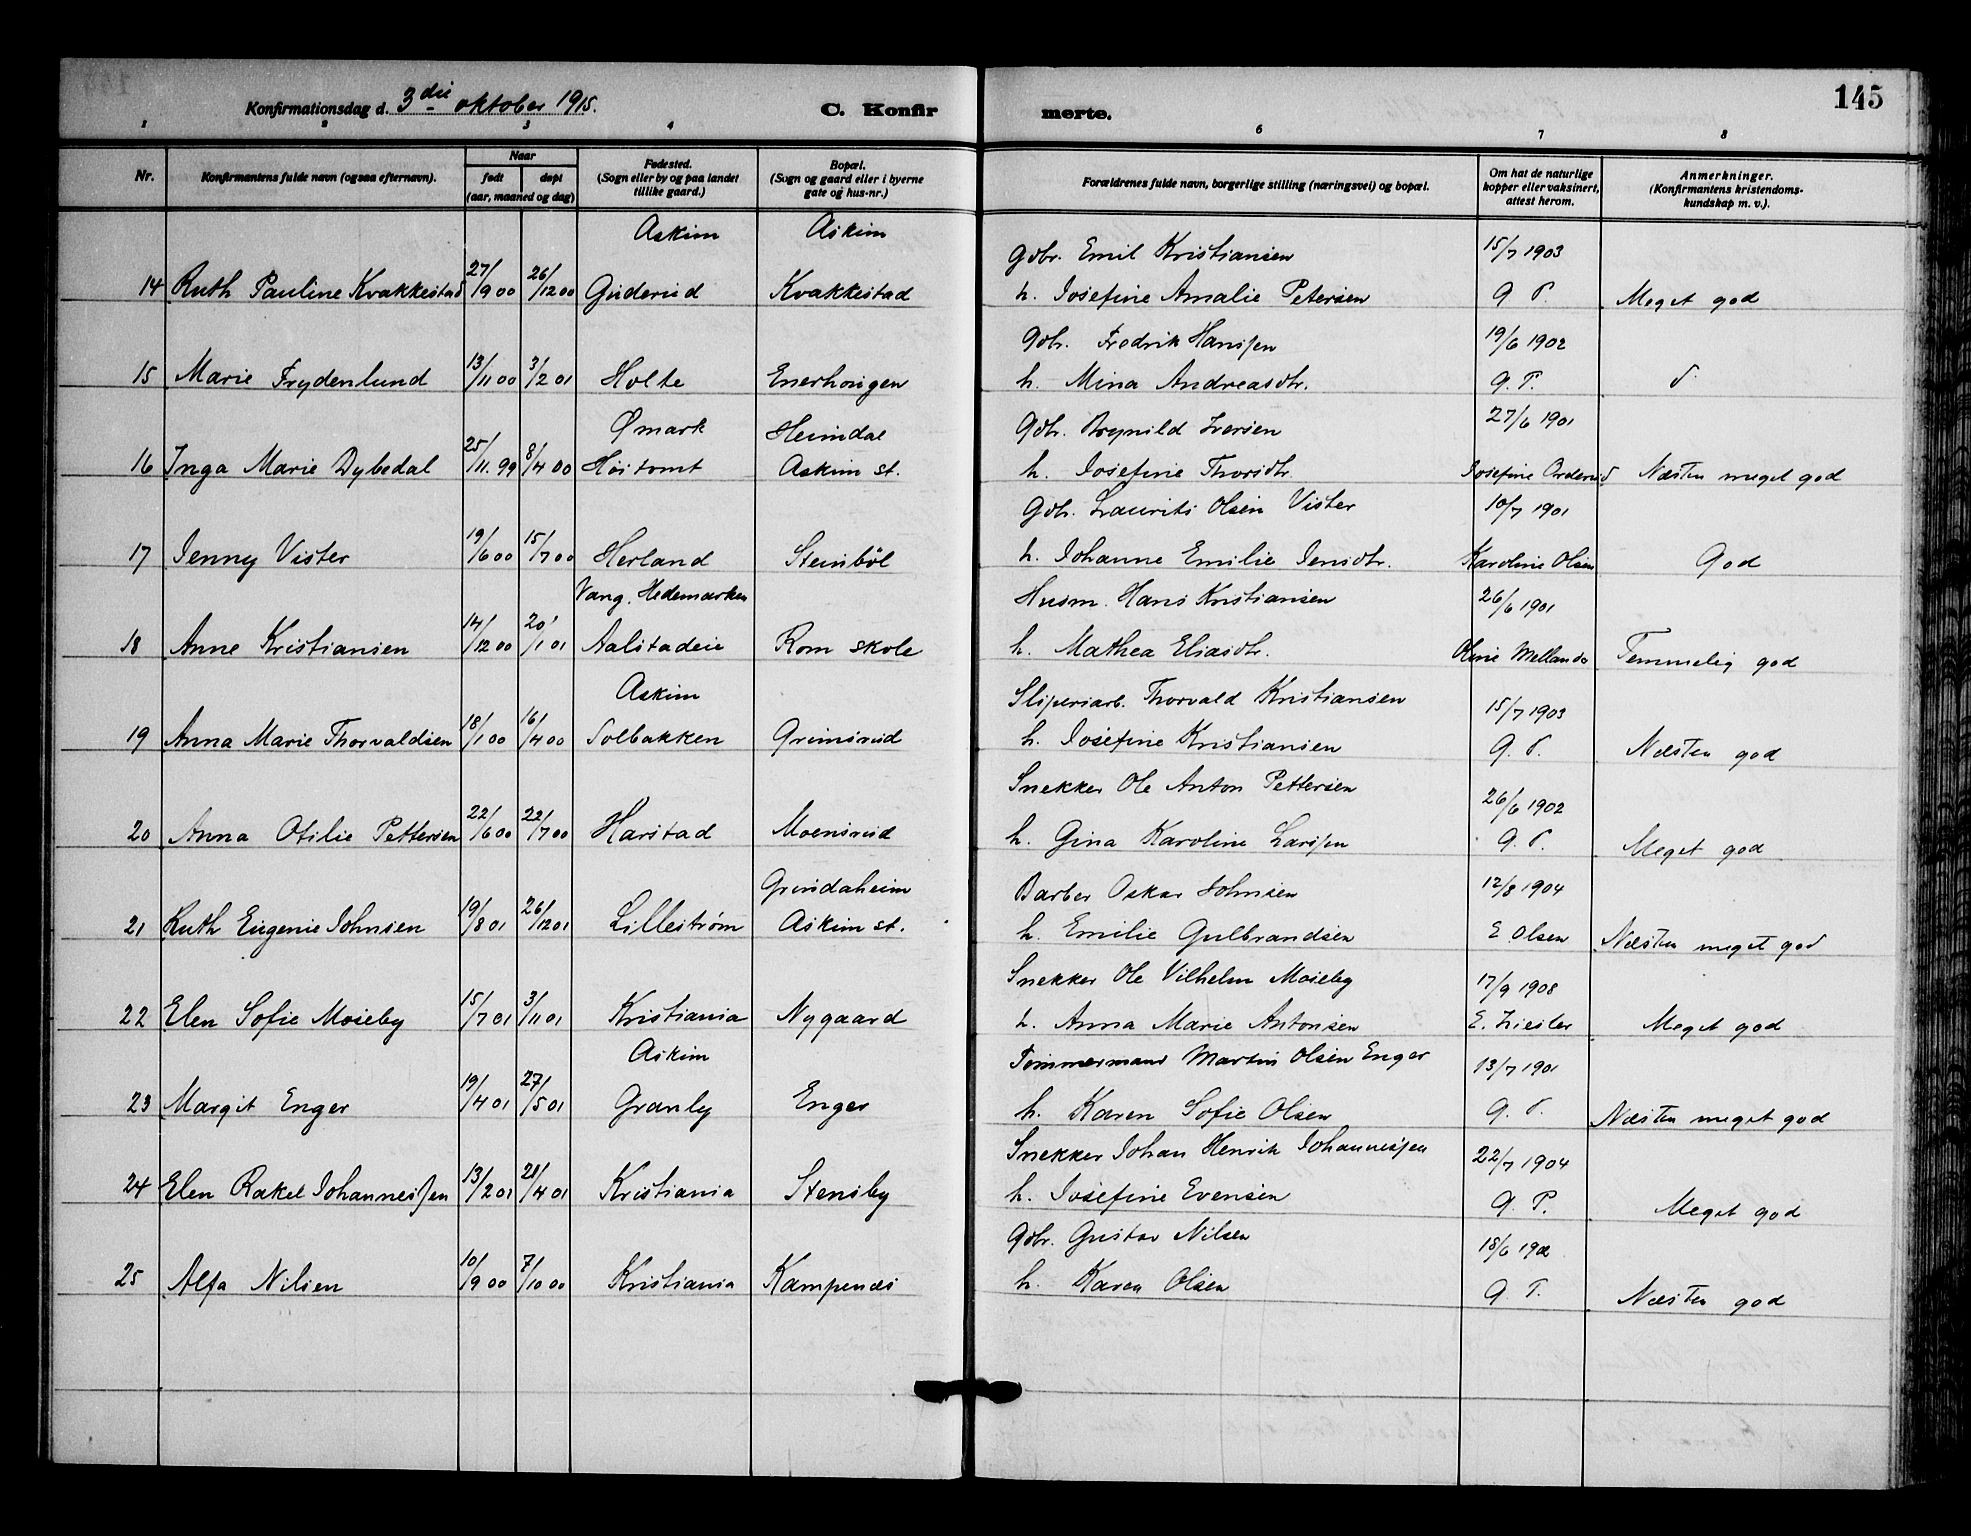 145
Konfirmationsdag d. 3die oktober 1915.
C. Konfirmerte.
1 2 3 4 6 7 8
Nr. Konfirmantens fulde navn (ogsaa efternavn). Naar født døpt (aar, maaned og dag) Fødested. (Sogn eller by og paa landet tillike gaard.) Bopæl. (Sogn og gaard eller i byerne gate og hus-nr.) Forældrenes fulde navn, borgerlige stilling (næringsvei) og bopæl. Om hat de naturlige kopper eller vaksinert, attest herom. Anmerkninger. (Konfirmantens kristendomskundskap m. v.).
Askim Askim Gdbr. Emil Kristiansen 15/7 1903
14 Ruth Pauline Kvakkestad 27/9 00 26/12 00 Guderud Kvakkestad h. Josefine Amalie Petersen Meget god
Gdbr. Fredrik Hansen 19/6 1902
15 Marie Frydenlund 13/11 00 3/2 01 Holte Enerhougen h. Mina Andreasdtr.
Ømark Heimdal Gdbr. Brynild Iversen 27/6 1901
16 Inga Marie Dybedal 25/11 99 8/4 00 Høitomt Askim st. h. Josefine Thorsdtr. Josefine Næsten meget god
Gdbr. Laurits Olsen Vister 10/7 1901
17 Jenny Vister 19/6 00 15/7 00 Herland Stenbøl h. Johanne Emilie Jensdtr. Karoline Olsen God
Vang. Hedemarken Husm. Hans Kristiansen 26/6 1901
18 Anne Kristiansen 14/12 00 20/1 01 Aalstadeie Rom skole h. Mathea Eliasdtr. Temmelig god
Askim Sliperiarb. Thorvald Kristiansen 15/7 1903
19 Anna Marie Thorvaldsen 18/1 00 16/4 00 Solbakken Grimsrud h. Josefine Kristiansen Næsten god
Snekker Ole Anton Pettersen 26/6 1902
20 Anna Otilie Pettersen 22/6 00 22/7 00 Harstad Moensrud h. Gina Karoline Larsen Meget god
Grindaheim Barber Oskar Johnsen 12/8 1904
21 Ruth Eugenie Johnsen 19/8 01 26/12 01 Lillestrøm Askim st. h. Emilie Gulbrandsen E. Olsen Næsten meget god
Snekker Ole Vilhelm Moseby 17/9 1908
22 Elen Sofie Moseby 15/7 01 3/11 01 Kristiania Nygaard h. Anna Marie Antonsen Meget god
Askim Tømmermand Martin Olsen Enger 13/7 1901
23 Margit Enger 19/4 01 27/5 01 Granly Enger h. Karen Sofie Olsen Næsten meget god
Snekker Johan Henrik Johannessen 22/7 1904
24 Elen Rakel Johannessen 13/2 01 21/4 01 Kristiania Stensby h. Josefine Evensen Meget god
Gdbr. Gustav Nilsen
25 Alfa Nilsen 10/9 00 7/10 00 Kristiania Kampenes h. Karen Olsen Næsten god